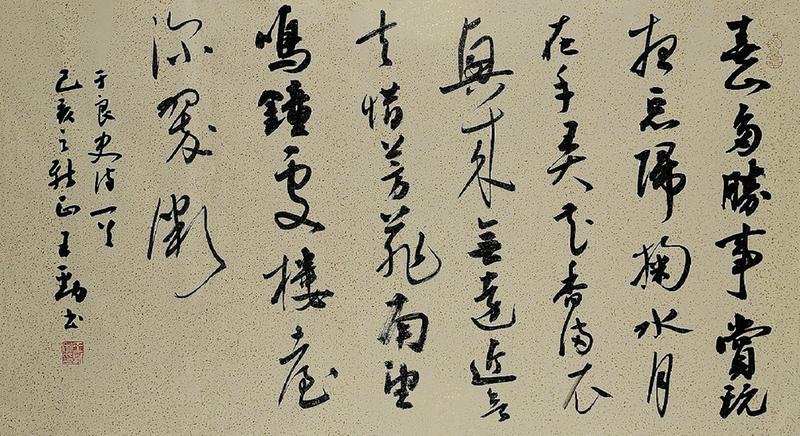 春山多勝事賞玩
夜忘歸掬水月
在手弄花香滿衣
興來無遠近欲
去惜芳菲南望
鳴鐘處樓臺
深翠微
于良史詩一首
己亥之新正王勁書